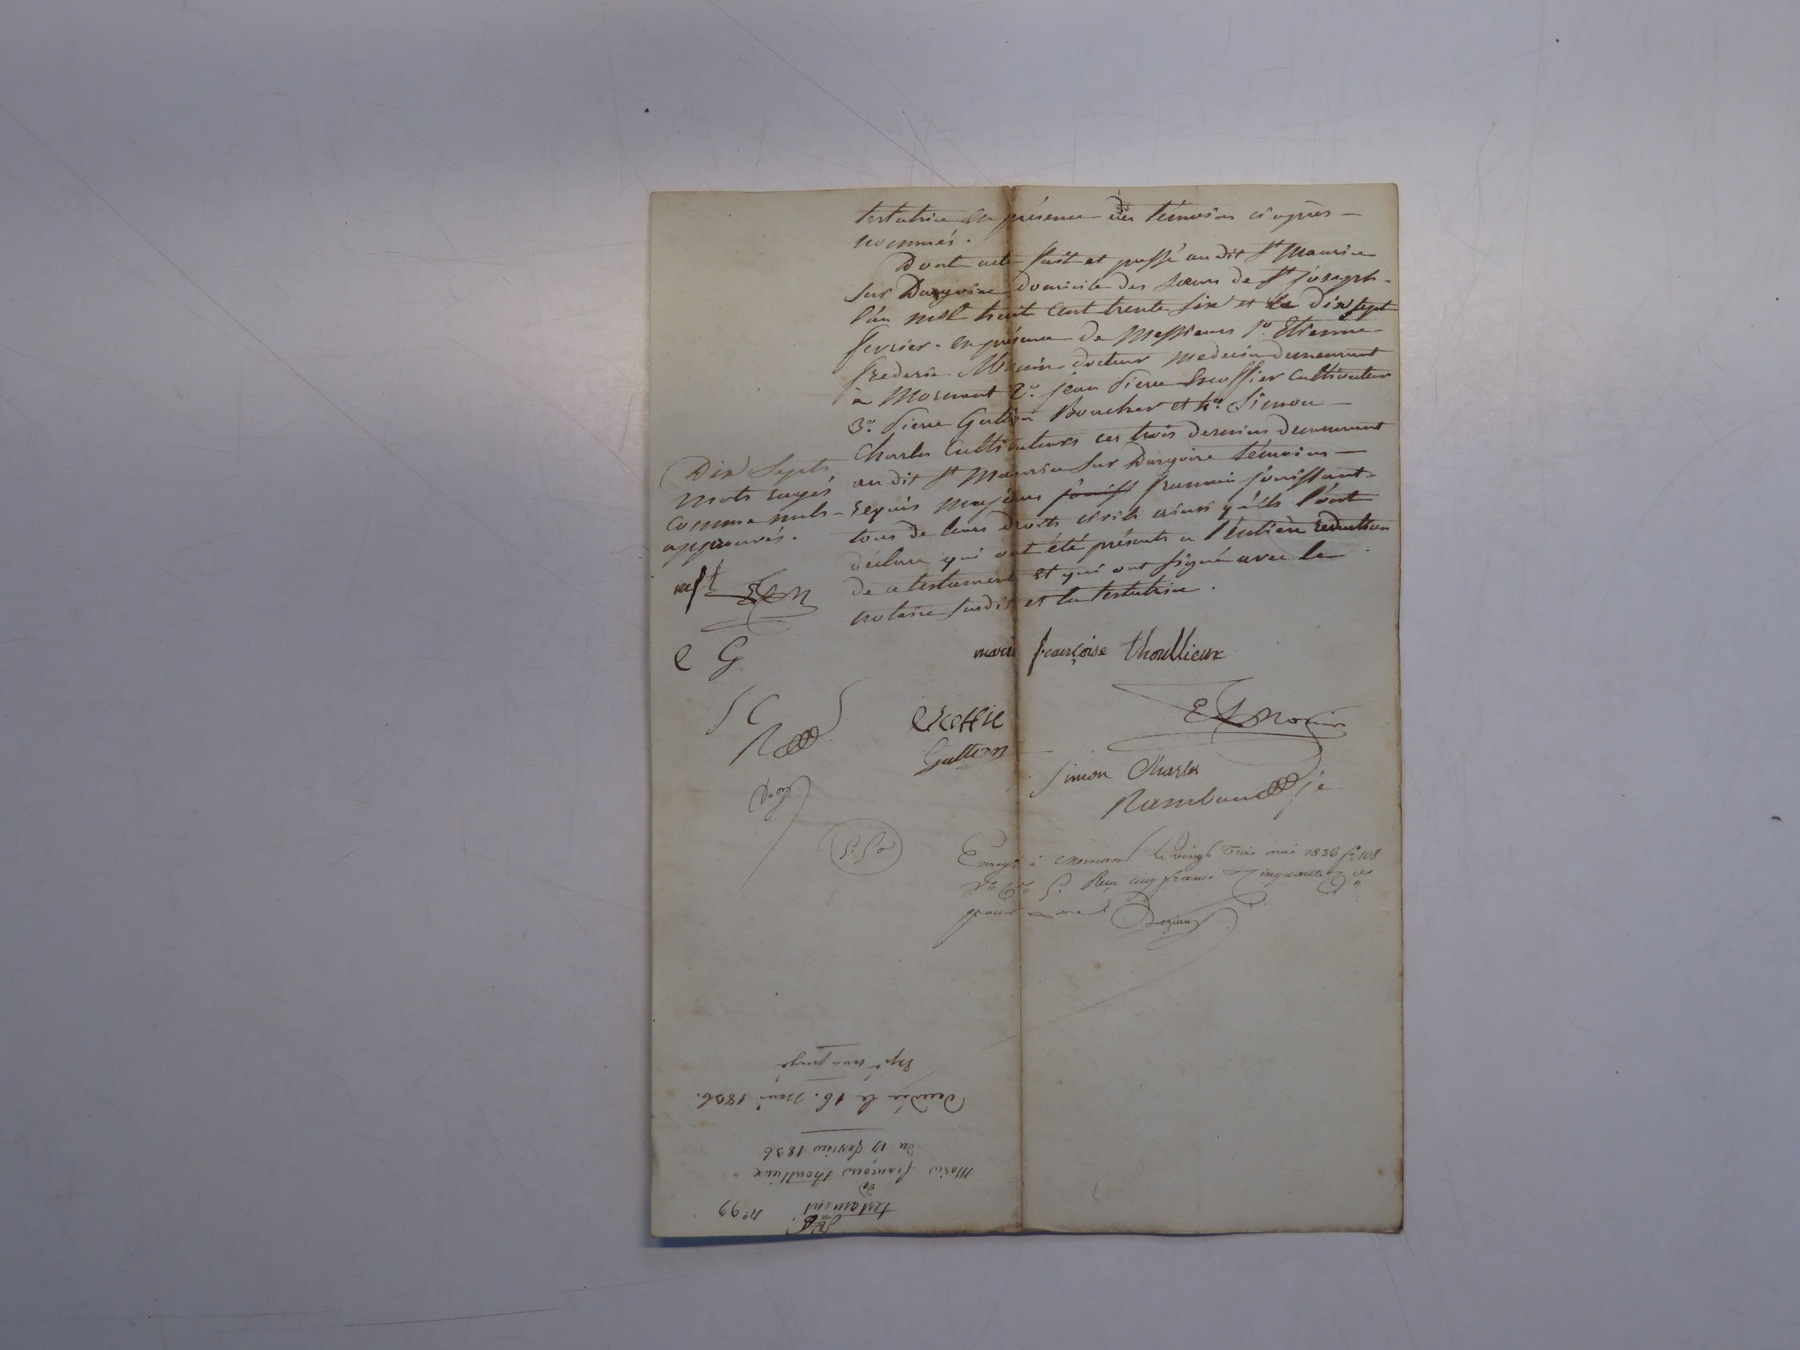 testatrice en présence des témoins ci après
nommés.
Dont acte fait et passé audit St Maurice
sur Dargoire domicile des sœurs de St joseph
l'an mil huit cent trente six et le dix sept
fevrier. en présence de Messieurs 1o. Etienne
frederic Monin docteur medecin demeurant
à Mornant 2o. jean Pierre Escoffier cultivateur
3o. Pierre Guttin Boucher et 4o. Simon
Charles Cultivateurs ces trois derniers demeurant
audit St Maurice sur Dargoire témoins
requis majeurs jouiss francais jouissant
tous de leurs droits civils ainsi qu'ils l'ont
déclaré qui ont été présents a l'entière redaction
de ce testament et qui ont signé avec le
notaire susdit et la testatrice.
Dix Septs
mots rayés
comme nuls
approuvés.
mft EFM
e G.
SC
R
marie françoise thoullieux
EFMonin
escoffie
Guttin
Simon Charles
Rambaud je
Enregé à Mornant le vingt trois mai 1836 fo 108
Vo Reçu cinq francs cinquante
testament
de
Marie françoise thoullieux
Du 17 fevrier 1836
Décédée le 16. mai 1836.
no 99